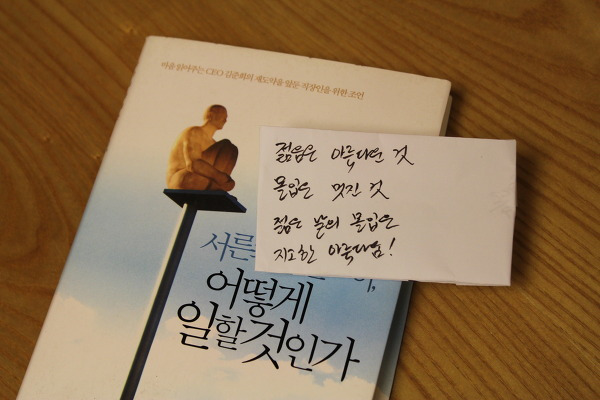 마음 읽어주는 CEO 김준희의 재도약을 앞둔 직장인을 위한 조언
젊음은 아름다운 것
몰입은 멋진 것
젊은 날의 몰입은
지고한 아름다움!
서른
어떻게
일할 것인가